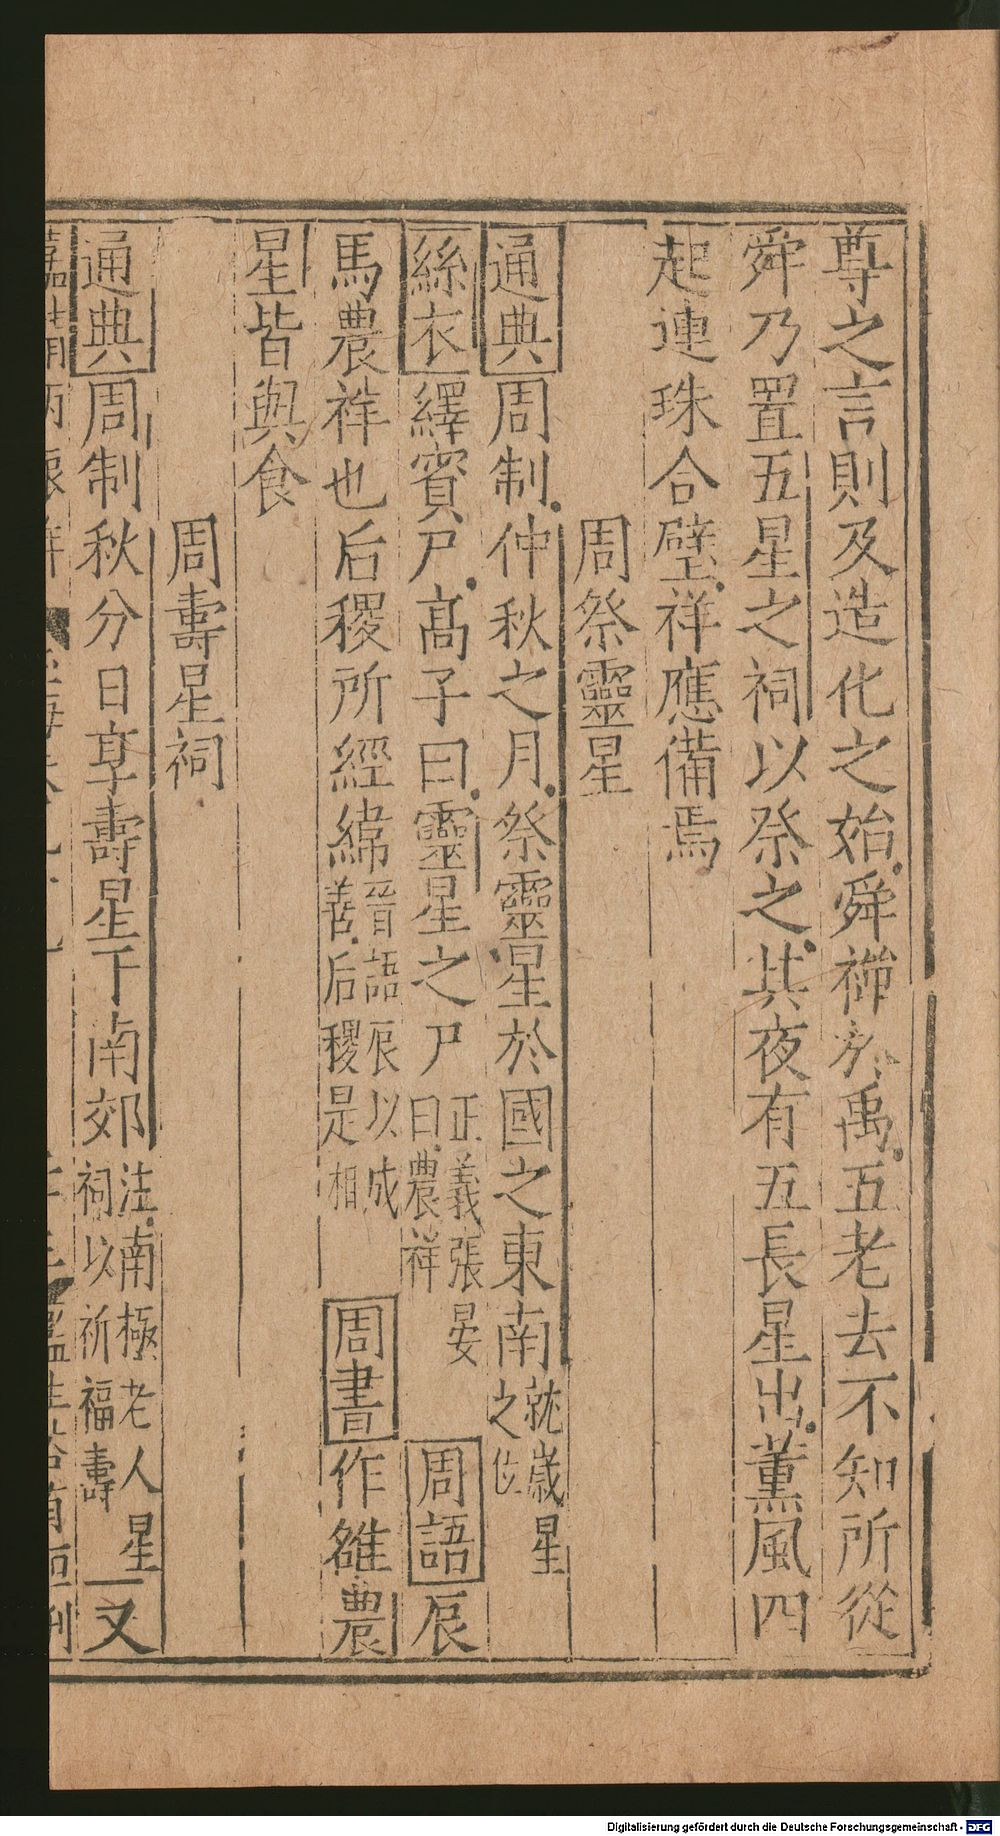 尊之言則及造化之始舜禅於禹五老去不知所從
舜乃置五星之祠以祭之其夜有五長星出薰風四
起連珠合璧祥應備焉
周祭靈星
通典周制仲秋之月祭靈星於國之東南就歲星之位
絲衣繹賓尸高子曰靈星之尸正義張晏曰農祥周語辰
馬農祥也后稷所經緯晉語辰以成善后稷是相周書作雒農
星皆與食
周壽星祠
通典周制秋分日享壽星于南郊注南極老人星祠以祈福壽又
Digitalisierung gefördert durch die Deutsche Forschungsgemeinschaft - DFG